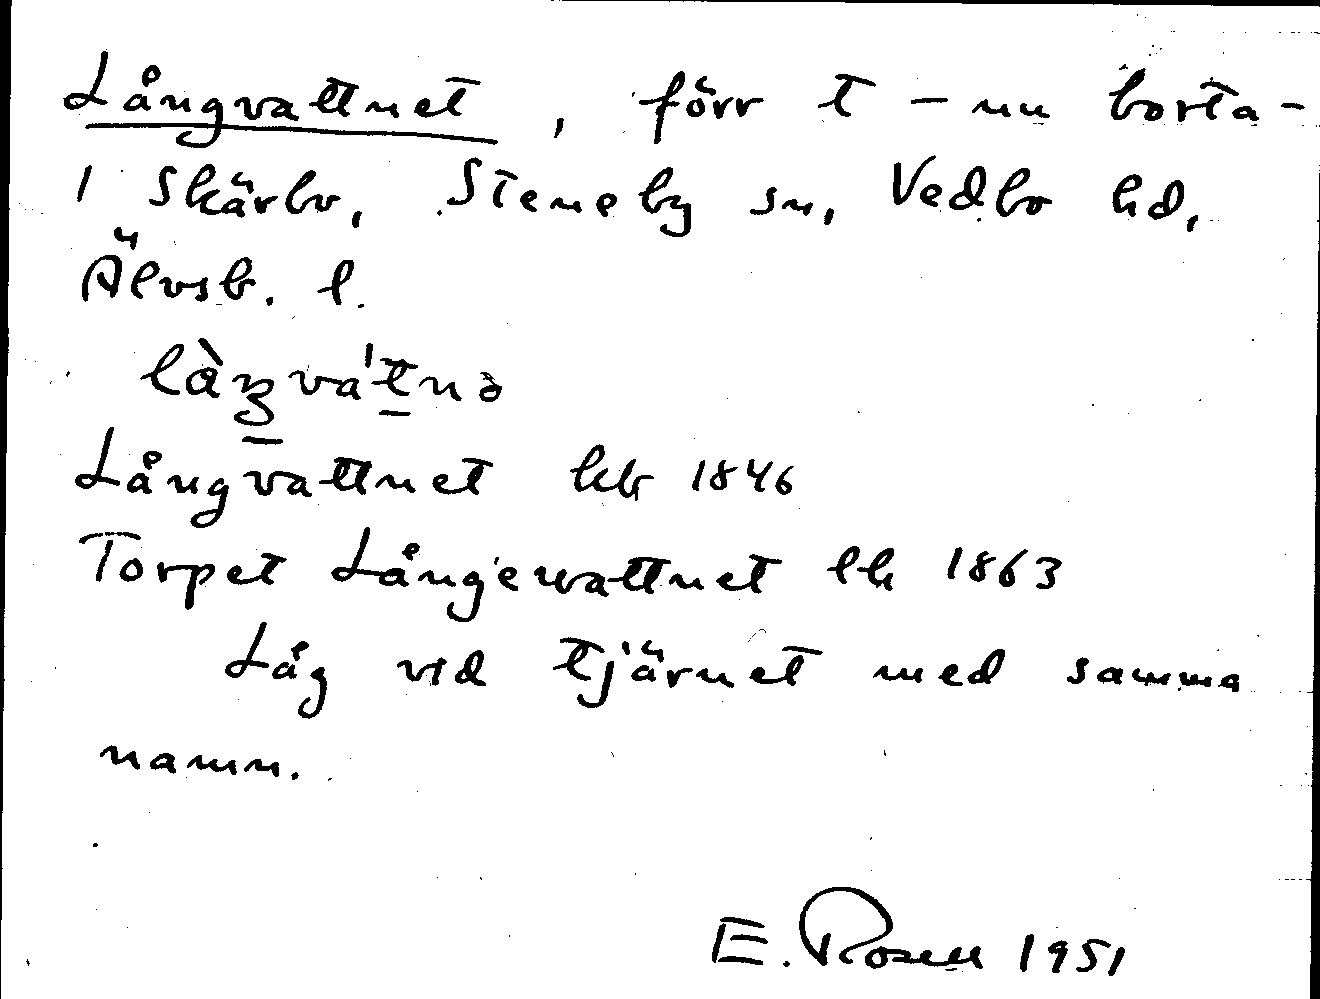 Långvattnet, förr t - nu borta -
i Skärbo, Steneby sn, Vedbo hd,
Älvsb. l.
Långvattnet hb 1846
Torpet Långewattnet lh 1863
Låg vid tjärnet med samma
namn.
E. Rosell 1951